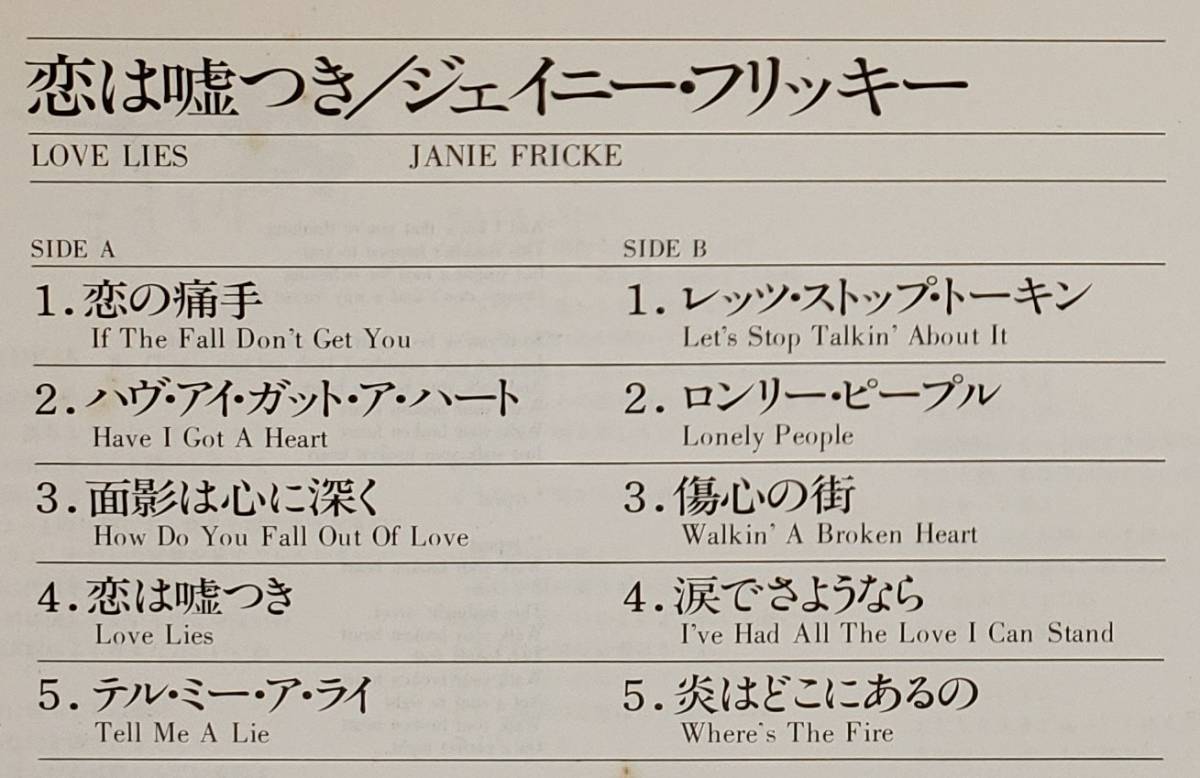 恋は嘘つき/ジェイニー・フリッキー
LOVE LIES JANIE FRICKE
SIDE A
1.恋の痛手
If The Fall Don't Get You
2.ハヴ・アイ・ガット・ア・ハート
Have I Got A Heart
3.面影は心に深く
How Do You Fall Out Of Love
4.恋は嘘つき
Love Lies
5.テル・ミー・ア・ライ
Tell Me A Lie
SIDE B
1.レッツ・ストップ・トーキン
Let's Stop Talkin' About It
2.ロンリー・ピープル
Lonely People
3.傷心の街
Walkin' A Broken Heart
4.涙でさようなら
I've Had All The Love I Can Stand
5.炎はどこにあるの
Where's The Fire